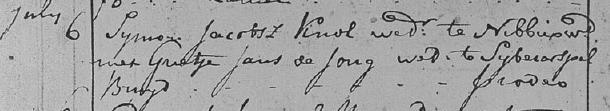 July 6 Symon Jacobsz Knol wedr. te Nibbixwd.
met Grietje Jans de Jong wed: te Sybecarspel
Buyd - - - - - - prodeo